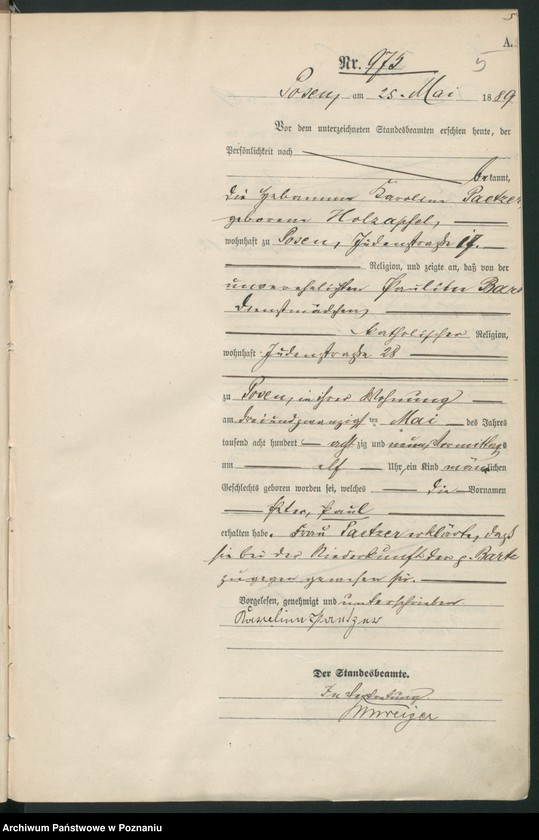 5
A.
Nr. 975
5
Posen, am 25. Mai 1889
Vor dem unterzeichneten Standesbeamten erschien heute, der
Persönlichkeit nach
bekannt,
die Hebamme Karoline Paetzer
geborene Holzapfel,
wohnhaft zu Posen, Judenstraße 17.
Religion, und zeigte an, daß von der
unverehelichten Pauline Bart
Dienstmädchen,
katholischer Religion,
wohnhaft Judenstraße 28
zu Posen, in ihrer Wohnung
am dreiundzwanzigsten Mai des Jahres
tausend acht hundert achtzig und neun, Vormittags
um elf Uhr, ein Kind männlichen
Geschlechts geboren worden sei, welches die Vornamen
Paul
erhalten habe. Frau Paetzer erklärte, daß
sie bei der Niederkunft der p. Bartz
zugegen gewesen sei.
Vorgelesen, genehmigt und unterschrieben
Karoline Paetzer
Der Standesbeamte.
In Vertretung.
Archiwum Państwowe w Poznaniu